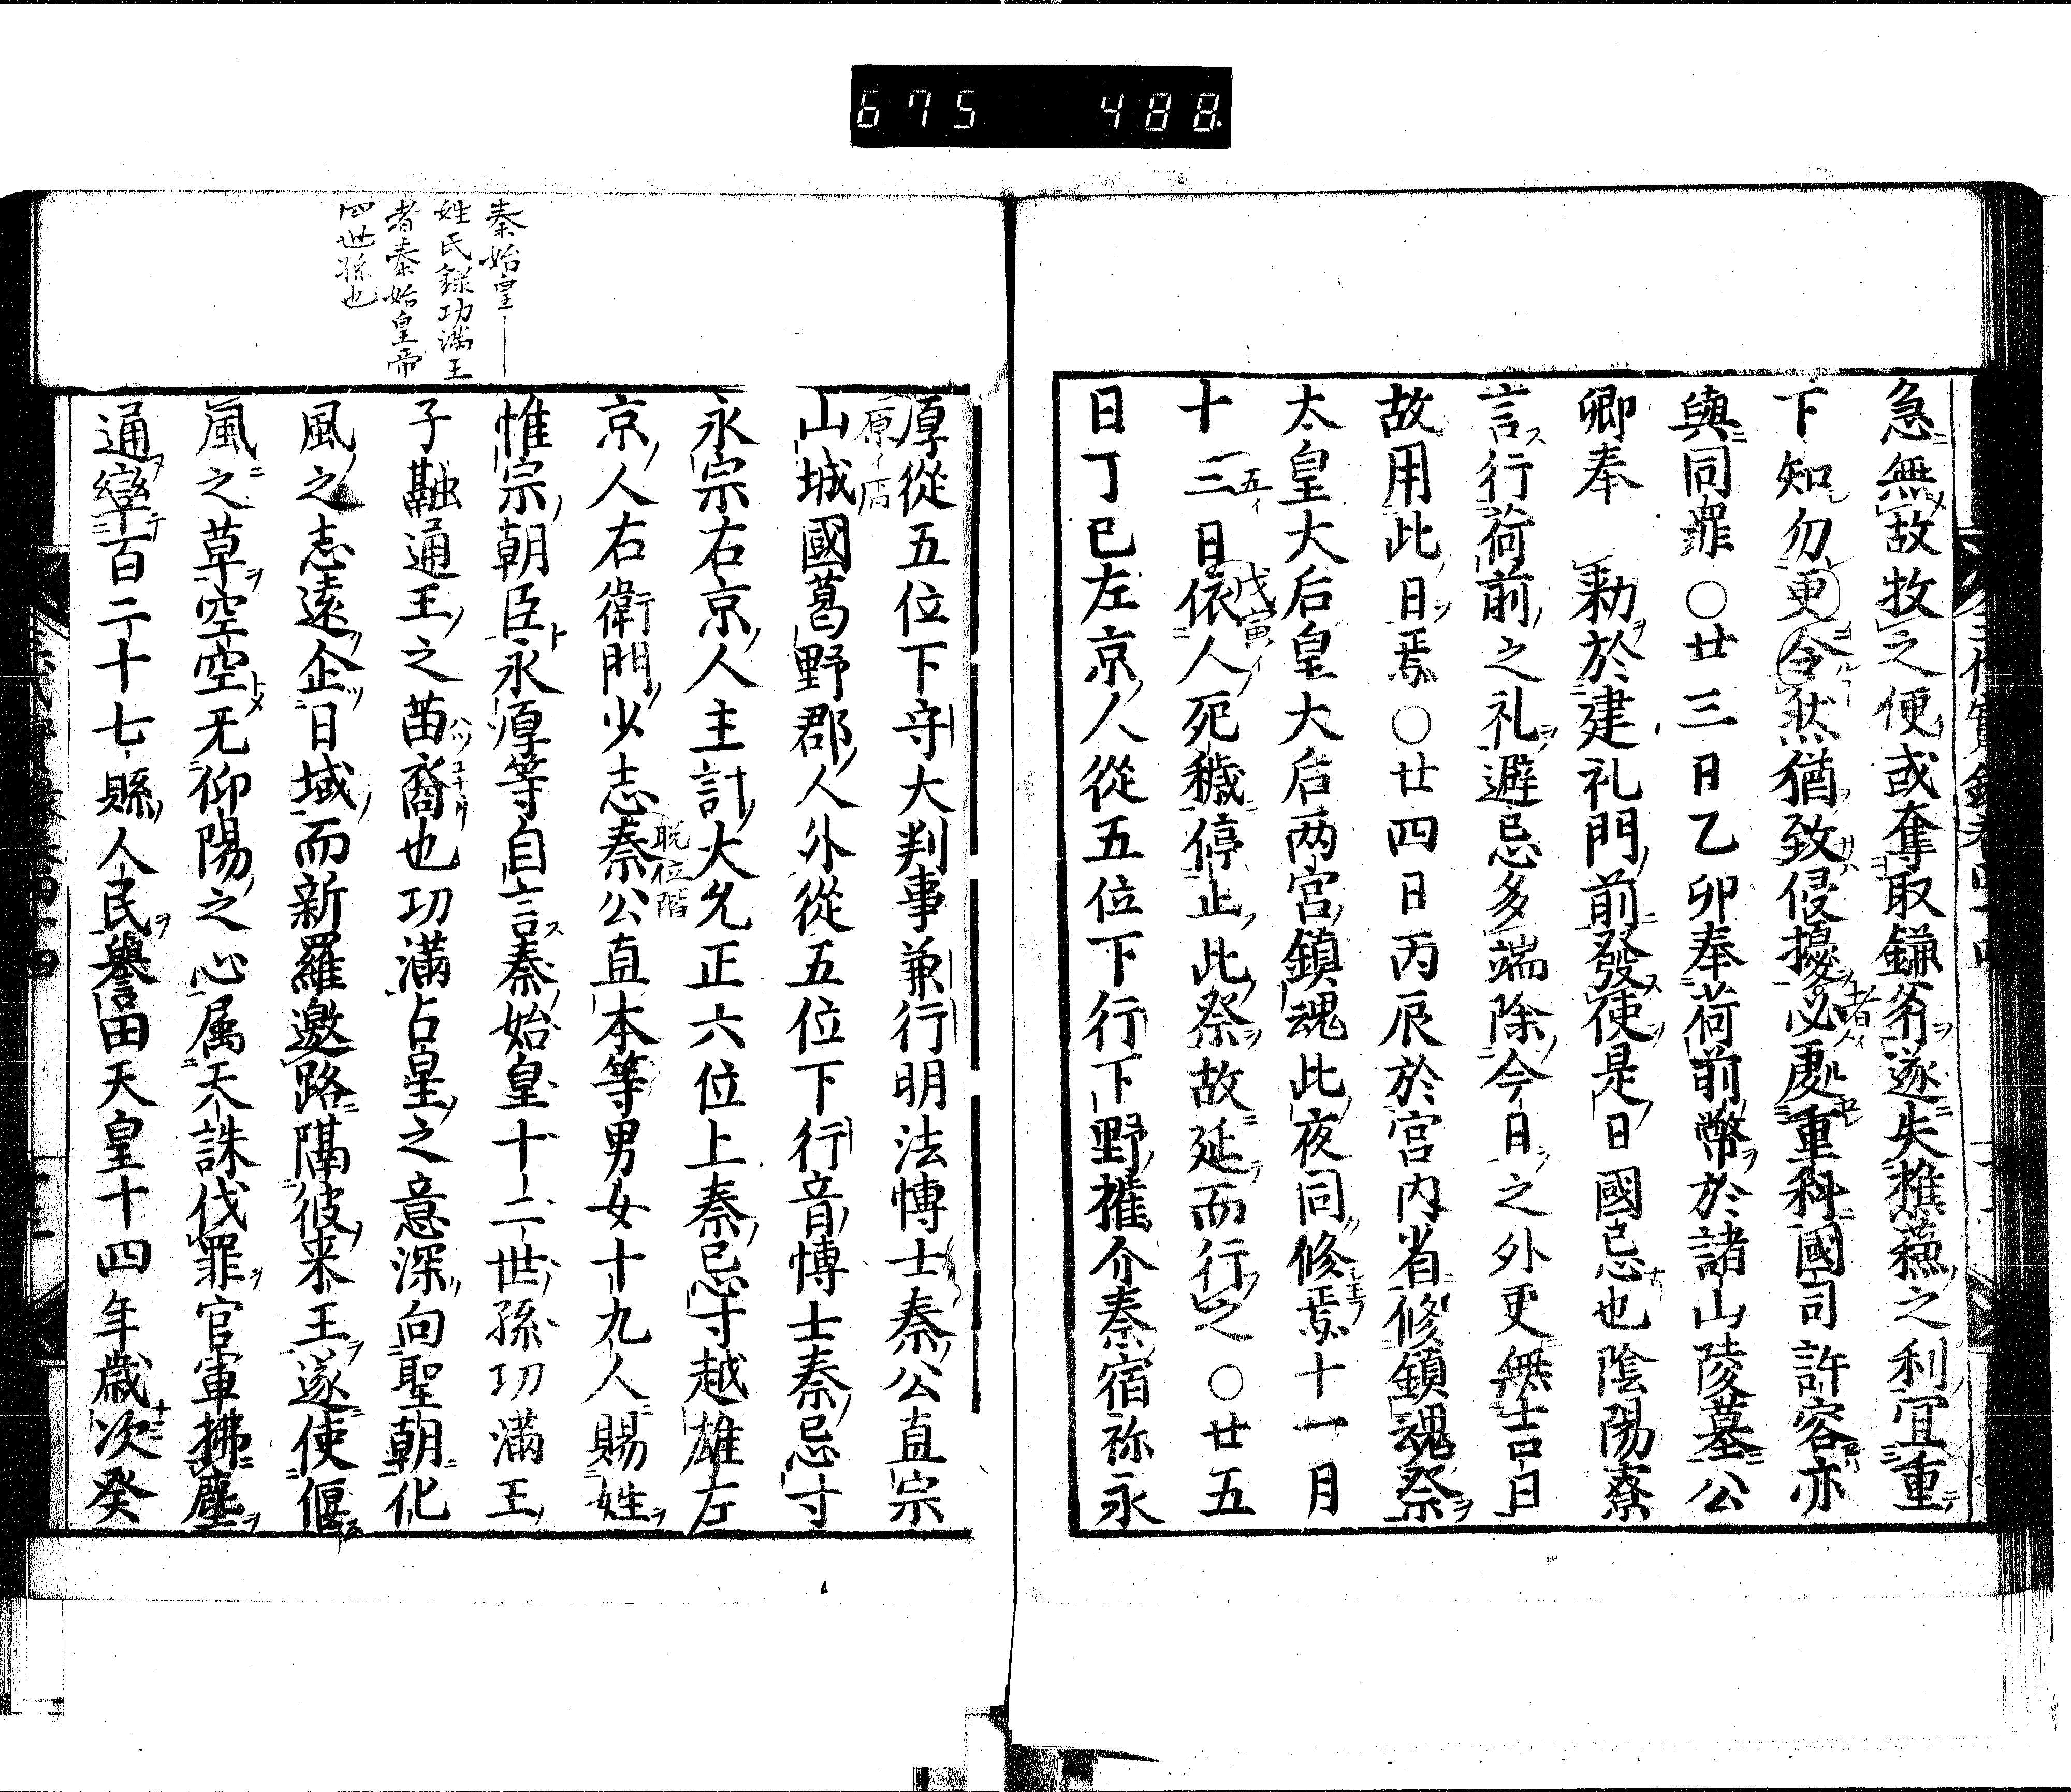 675 488
急無故牧之便或奪取鎌斧遂失樵蘇之利宜重
下知勿更令然猶致侵擾必處重科國司許容亦
與同罪○廿三日乙卯奉荷前幣於諸山陵墓公
卿奉 勅於建礼門前發使是日國忌也陰陽寮
言行荷前之礼避忌多端除今日之外更無吉日
故用此日焉○廿四日丙辰於宮内省修鎮魂祭
太皇大后皇大后两宮鎮魂此夜同修焉十一月
十三日依人死穢停止此祭故延而行之○廿五
日丁巳左京人從五位下行下野權介秦宿祢永
厚從五位下守大判事兼行明法愽士秦公直宗
山城國葛野郡人外從五位下行音愽士秦忌寸
永宗右京人主計大允正六位上秦忌寸越雄左
京人右衛門少志秦公直本等男女十九人賜姓
惟宗朝臣永厚等自言秦始皇十二世孫功滿王
子融通王之苗裔也功滿占星之意深向聖朝化
風之志遠企日域而新羅邀路隔彼来王遂使偃
風之草空空无仰陽之心属天誅伐罪官軍拂塵
通率百二十七縣人民譽田天皇十四年歳次癸
秦始皇
姓氏錄功満王
者秦始皇帝
四世孫也
五イ
戊寅イ
者イ
原イ
脱位階